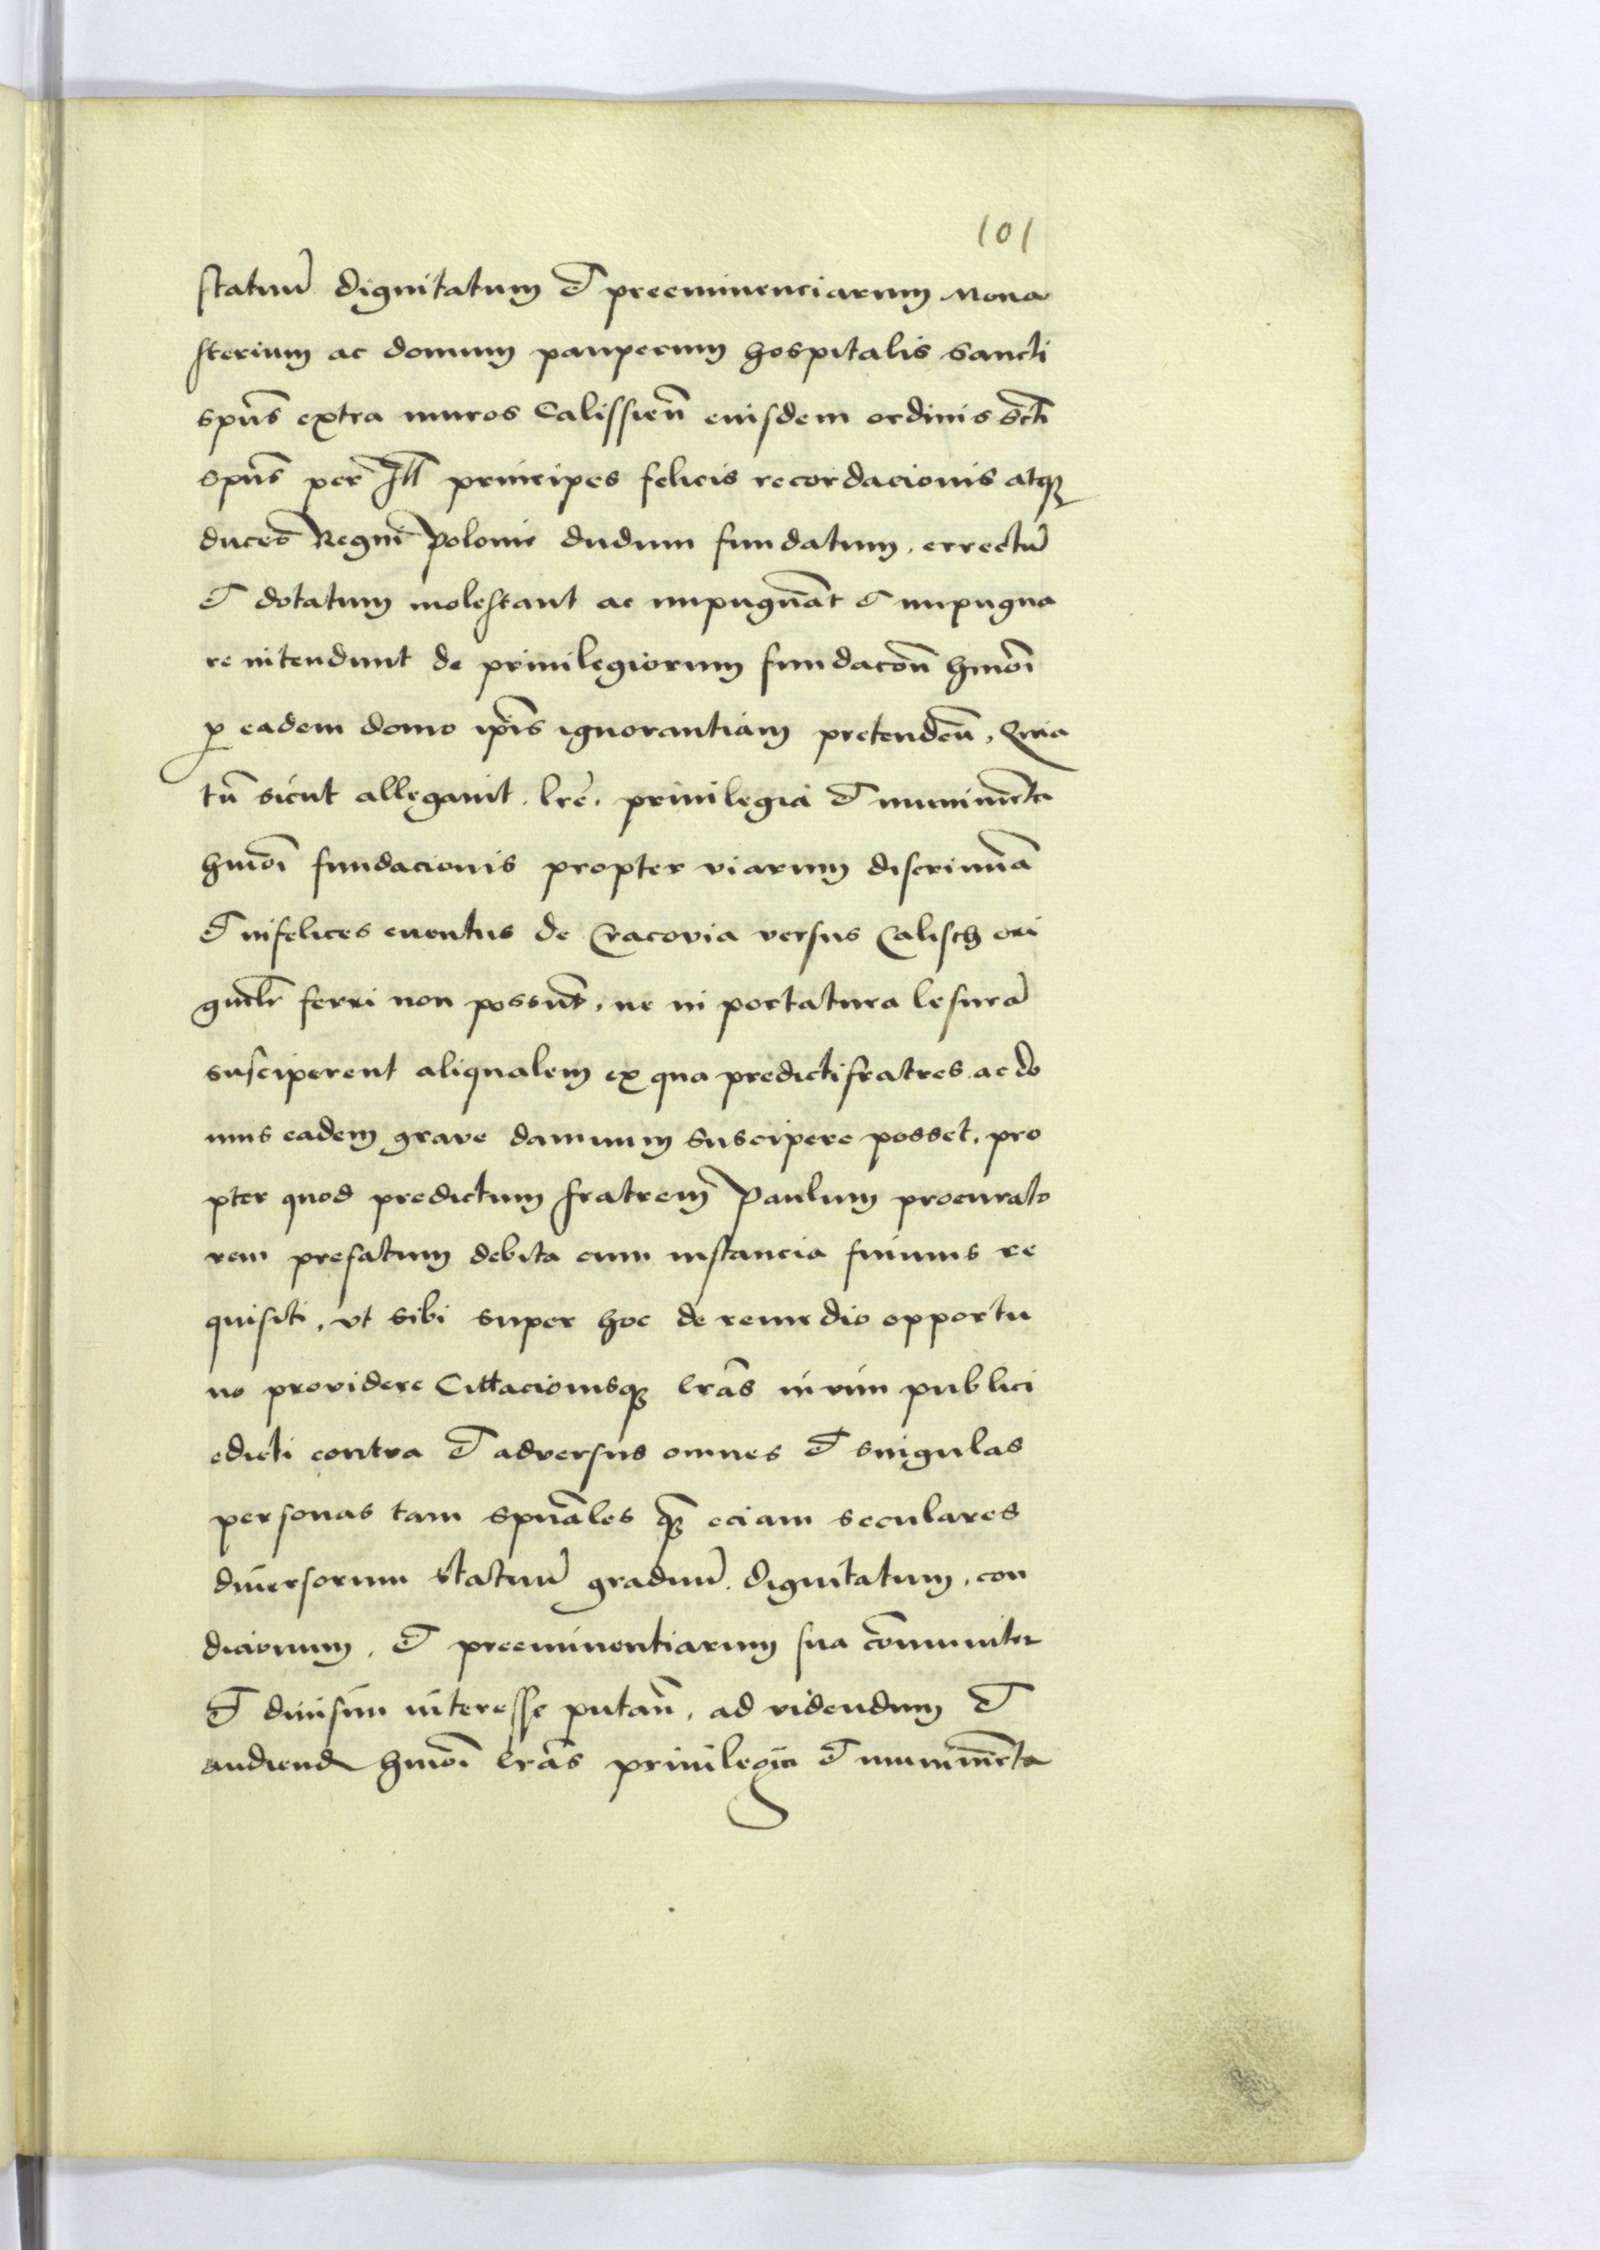 101
statuū dignitatum et preeminenciarum Mona
sterium ac domum pauperum hospitalis Sancti
spūs extra muros Calissieñ eiusdem ordinis Scti
Spūs per Ill principes felicis recordacionis atqꝫ
duces Regni Polonie dudum fundatum, errectū
et dotatum molestant ac impugnāt et impugna
re intendunt de priuilegiorum fundacōn hmōi
ꝓ eadem domo ip̄is ignorantiam pretendeñ, Quia
tn̄ sicut allegauit, lrē, priuilegia et munimēta
hmōi fundacionis propter viarum discrimīa
et infelices euentus de Cracovia versus Calisch ori
gnclr̄ ferri non possūt, ne in portatura lesurā
susciperent aliqualem ex qua predicti fratres ac do
mus eadem grave damnum suscipere posset, pro
pter quod predictum fratrem Paulum procurato
rem prefatum debita cum instancia fuimus re
quisiti, vt sibi super hoc de remedio opportu
no providere Cittacionisqꝫ lrās in vim publici
edicti contra et adversus omnes et singulas
personas tam spūales qꝫ eciam seculares
diuersorum statuū graduū, dignitatum, con
dicionum, et preeminentiarum sua cōmuniter
et diuisim interesse putañ, ad videndum et
audiend hmōi lrās priuilegia et munimēta